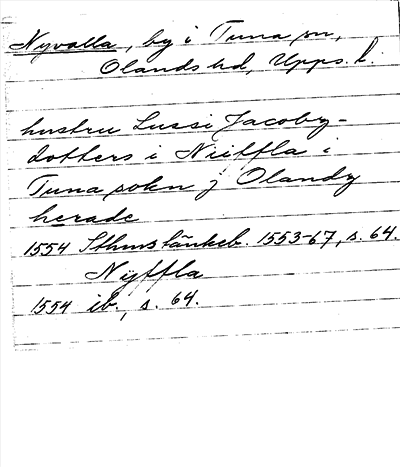 Nyvalla, by i Tuna sn,
Olands hd, Upps. l.
hustru Lussi Jacobz-
dotters i Niitfla i
Tuna sokn j Olandz
herade
1554 Sthms tänkeb. 1553-67, s. 64.
Nyffla
1554 ib., s. 64.